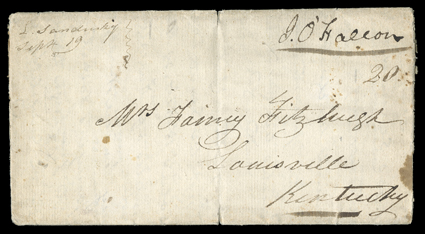 L. Sandusky
Sept. 19
J. O'Fallon
20
Mrs Fanny Fitzhugh
Louisville
Kentucky